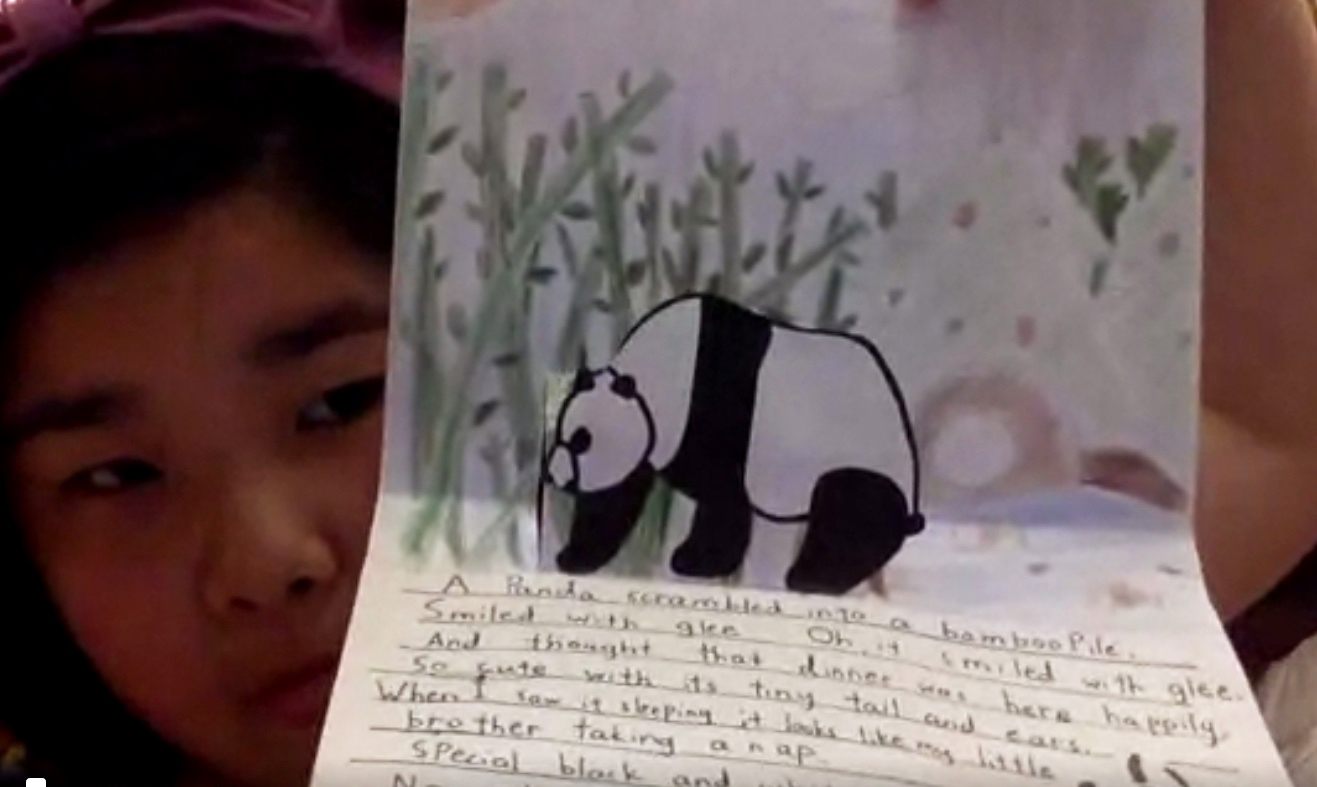 A Panda scrambled into a bamboo Pile.
Smiled with glee Oh, it smiled with glee.
And thought that dinner was here happily.
So cute with its tiny tail and ears.
When I saw it sleeping it looks like my little
brother taking a nap.
Special black and